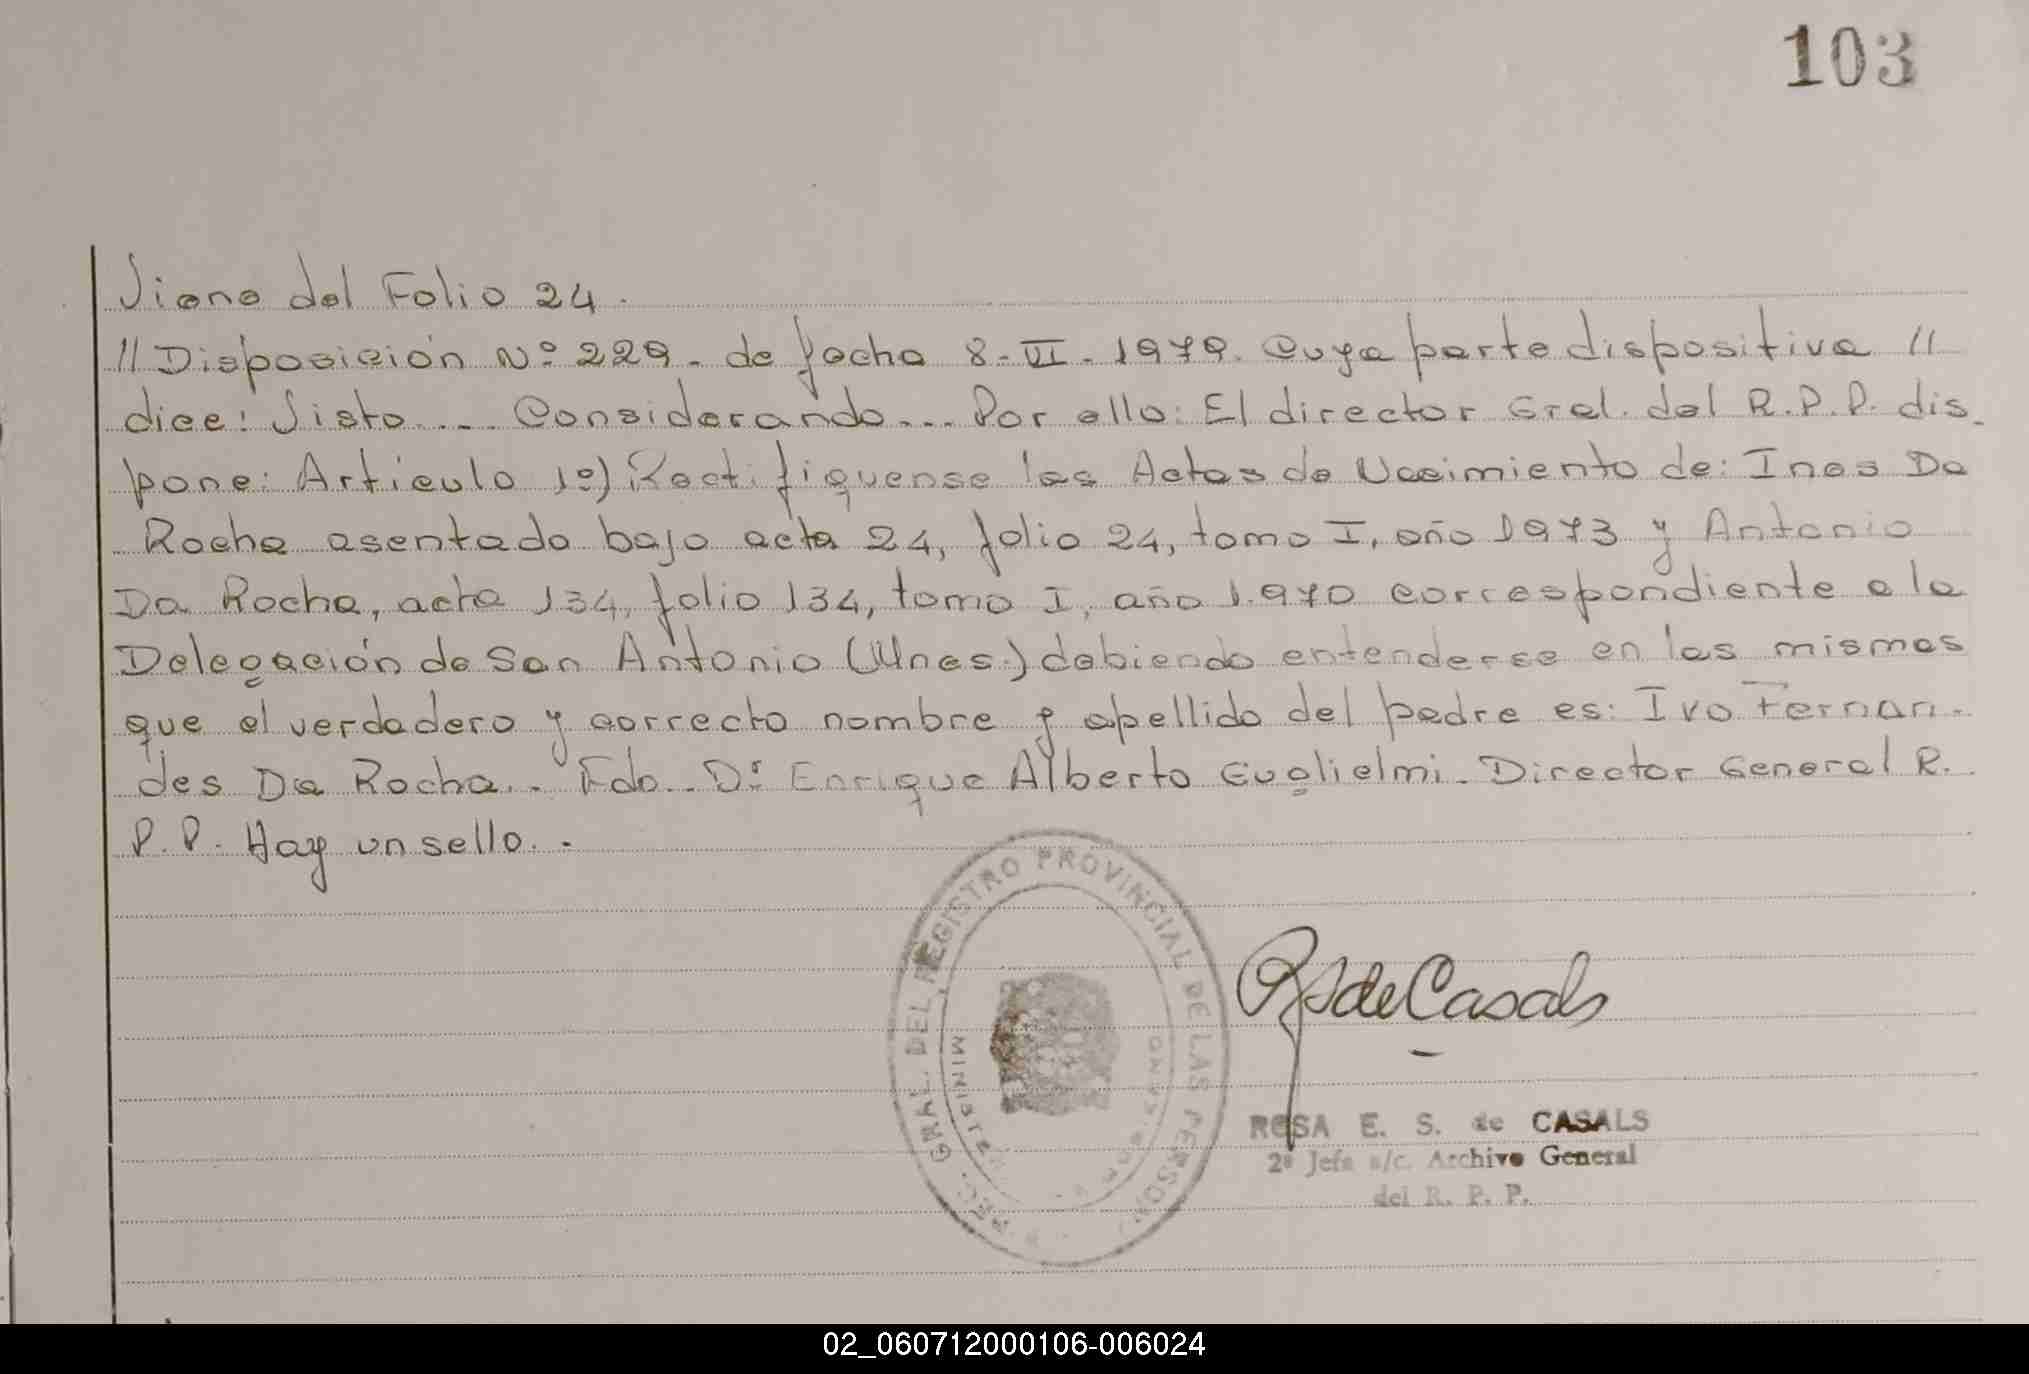 103
Viene del Folio 24.
// Disposición Nº 229. de fecha 8-VI-1979. Cuya parte dispositiva //
dice: Visto.... Considerando... Por ello: El director Gral. del R.P.P. dis-
pone: Articulo 1º) Rectifiquense las Actas de Nacimiento de: Ines Da
Rocha asentada bajo acta 24, folio 24, tomo I, año 1973 y Antonio
Da Rocha, acta 134, folio 134, tomo I, año 1.970 correspondiente a la
Delegación de San Antonio (Mnes.) debiendo entenderse en las mismas
que el verdadero y correcto nombre y apellido del padre es: Ivo Fernan-
des Da Rocha.. Fdo. Dr. Enrique Alberto Guglielmi. Director General R.
P.P. Hay un sello. .
GRAL. DEL REGISTRO PROVINCIAL DE LAS PERSON
MINISTE
RdeCasals
ROSA E. S. de CASALS
2º Jefe a/c. Archivo General
del R. P. P.
02_060712000106-006024